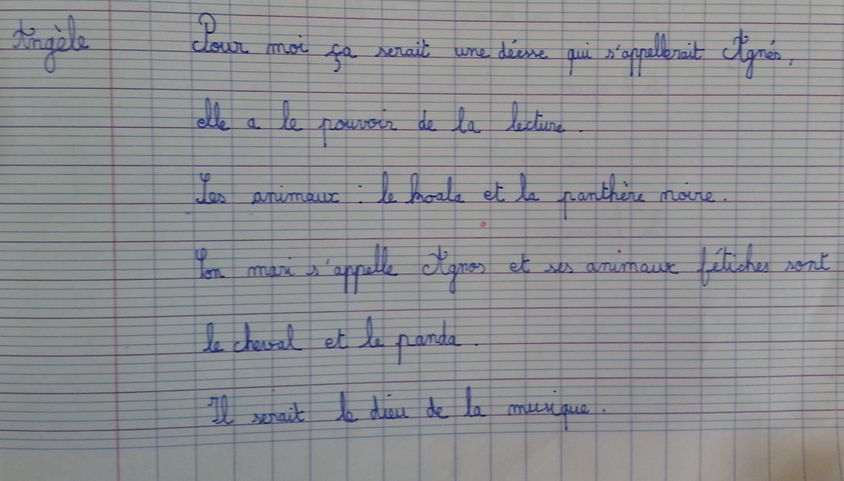 Angèle
Pour moi ça serait une déesse qui s'appellerait Agnés,
elle a le pouvoir de la lecture.
Ses animaux : le koala et la panthère noire.
Son mari s'appelle Agnos et ses animaux fétiches sont
le cheval et le panda.
Il serait le dieu de la musique.